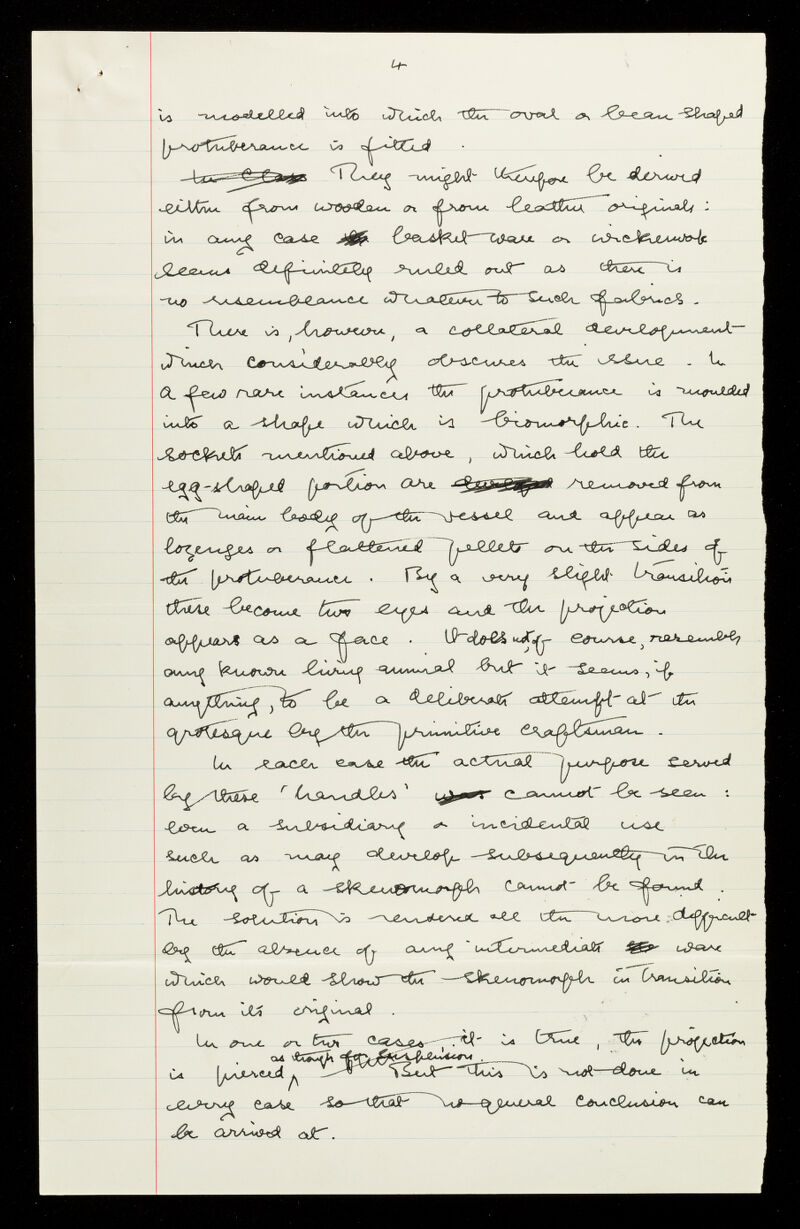 4
is modelled into which the oval or bean shaped
protuberance is fitted .
In Class They might therefore be derived
either from wooden or from leather originals :
in any case basket ware or wickerwork
seems definitely ruled out as there is
no resemblance whatever to such fabrics .
There is , however , a collateral development
which considerably obscures the issue . In
a few rare instances the protuberance is moulded
into a shape which is biomorphic . The
sockets mentioned above , which hold the
egg-shaped portion are removed from
the main body of the vessel and appear as
lozenges or flattened pellets on the sides of
the protuberance . By a very slight transition
these become two eyes and the projection
appears as a face . It does not, of course, resemble
any known living animal but it seems, if
anything, to be a deliberate attempt at the
grotesque by the primitive craftsman .
In each case the actual purpose served
by these 'handles' was cannot be seen :
even a subsidiary or incidental use
such as may develop subsequently in the
history of a skenomorph cannot be found .
The solution is rendered all the more difficult
by the absence of any intermediate ware
which would show the skenomorph in transition
from its original .
In one or two cases it is true , the projection
as though for suspension.
is pierced ^ But this is not done in
every case so that no general conclusion can
be arrived at .